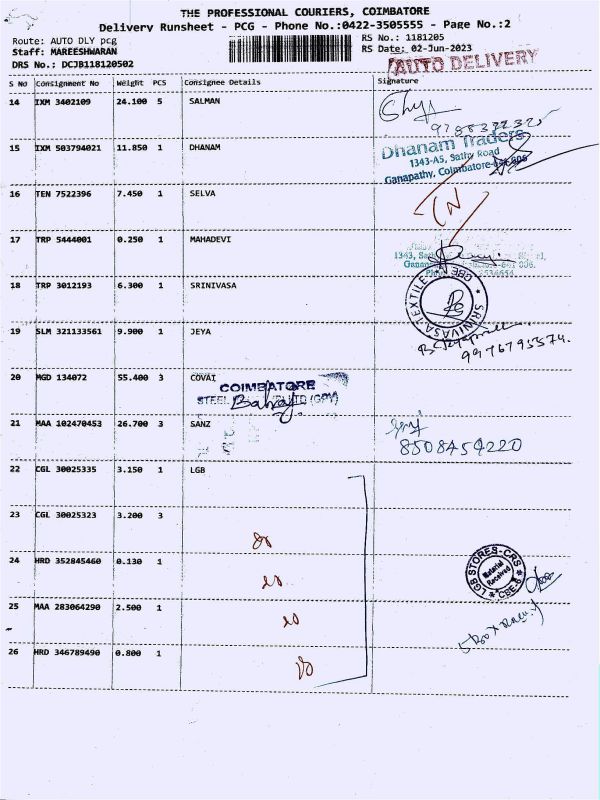 THE PROFESSIONAL COURIERS, COIMBATORE
Delivery Runsheet - PCG - Phone No.:0422-3505555 - Page No.:2
Route: AUTO DLY pcg
RS No.: 1181205
Staff: MAREESHWARAN
RS Date: 02-Jun-2023
DRS No.: DCJB118120502
AUTO DELIVERY
S No Consignment No Weight PCS Consignee Details Signature
14 IXM 3402109 24.100 5 SALMAN
15 IXM 503794021 11.850 1 DHANAM
Dhanam Traders
1343-A5, Sathy Road
Ganapathy, Coimbatore-641 006
16 TEN 7522396 7.450 1 SELVA
17 TRP 5444001 0.250 1 MAHADEVI
18 TRP 3012193 6.300 1 SRINIVASA
SRINIVASA-TEXTILE
CBE
19 SLM 321133561 9.900 1 JEYA
9976795574.
20 MGD 134072 55.400 3 COVAI
COIMBATORE
STEEL
21 MAA 102470453 26.700 3 SANZ
8508454220
22 CGL 30025335 3.150 1 LGB
23 CGL 30025323 3.200 3
24 HRD 352845460 0.130 1
LGB STORES-CRS
Material
Received
CBE-6
25 MAA 283064290 2.500 1
5 Box
26 HRD 346789490 0.800 1